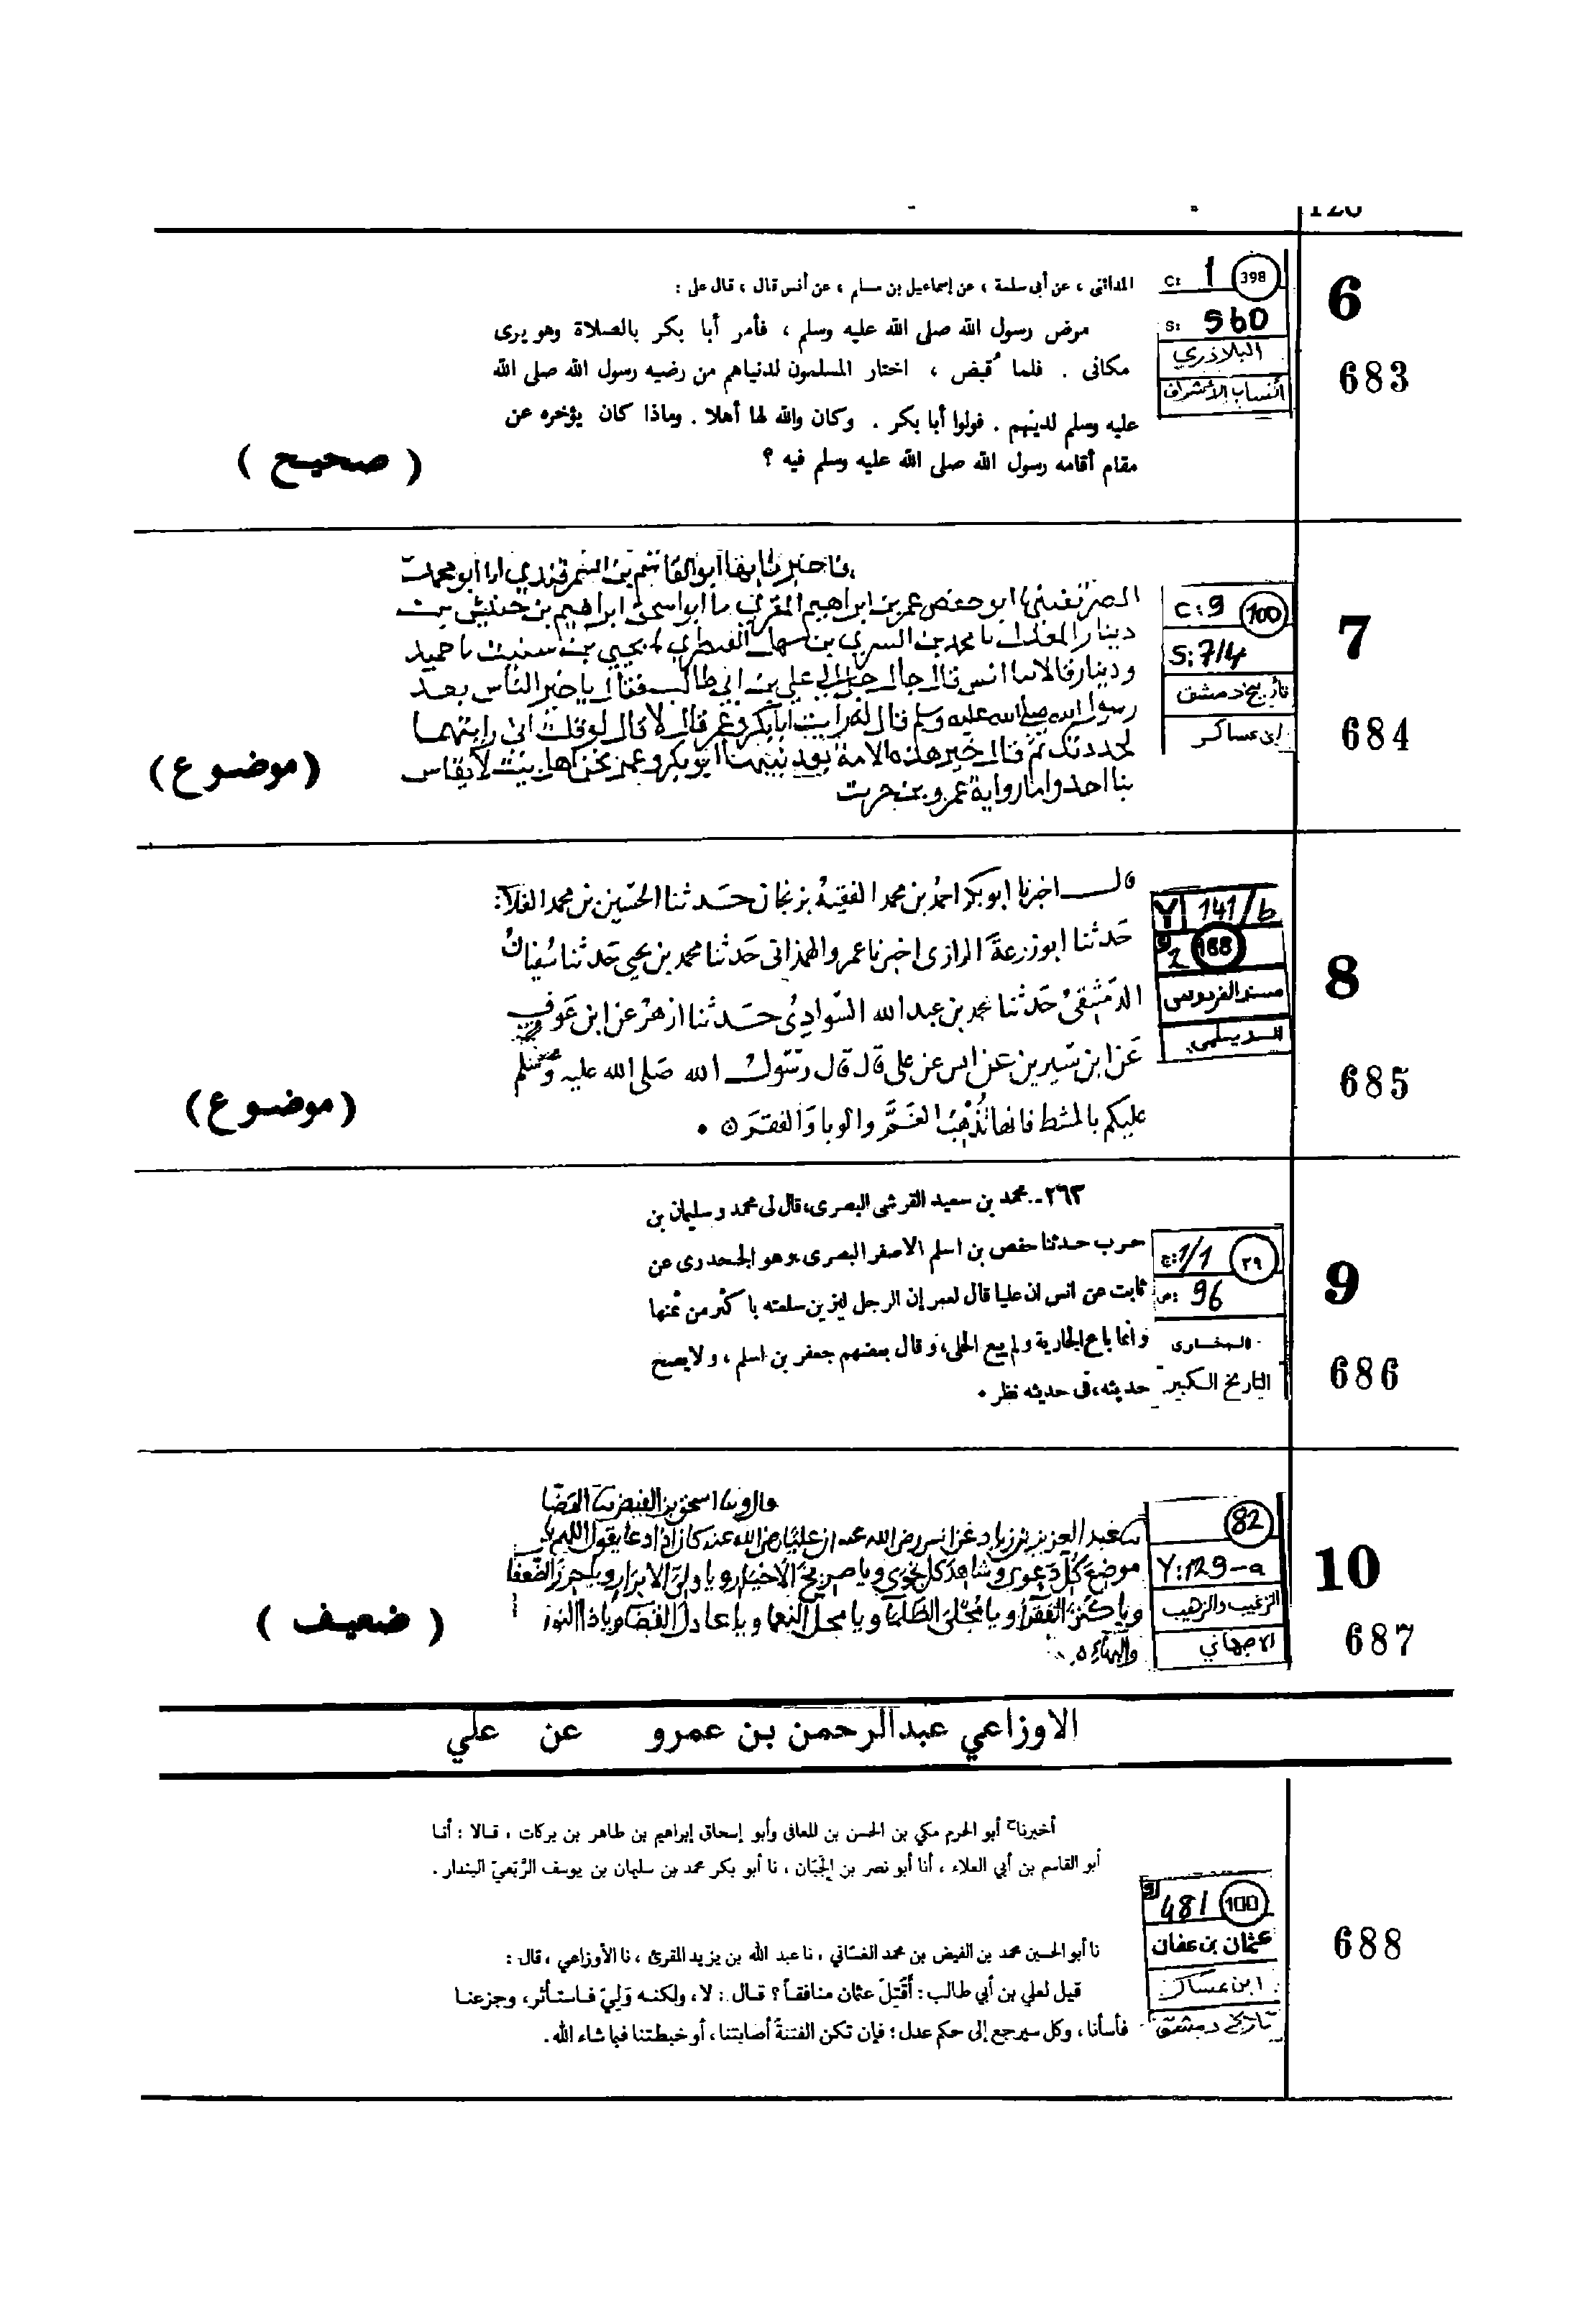 6
683
C: 1 398
S: 560
البلاذري
أنساب الأشراف
المدائنى ، عن أبى سلمة ، عن إسماعيل بن مسلم ، عن أنس قال ، قال على :
مرض رسول الله صلى الله عليه وسلم ، فأمر أبا بكر بالصلاة وهو يرى
مكانى . فلما قبض ، اختار المسلمون لدنياهم من رضيه رسول الله صلى الله
عليه وسلم لدينهم . فولوا أبا بكر . وكان والله لها أهلا . وماذا كان يؤخره عن
مقام أقامه رسول الله صلى الله عليه وسلم فيه ؟
( صحيح )
7
684
C:9 100
S:714
تاريخ دمشق
ابن عساكر
ابو القاسم بن السمرقندي ابو محمد
ابو حفص عمر بن ابراهيم المقري ابو اسحق ابراهيم بن حنيش بن
دينار المعدل محمد بن السري بن سهل القنطري يحيى بن حميد
ودينار قالا انس قال جا رجل الى علي بن ابي طالب فقال يا خير الناس بعد
رسول الله صلى الله عليه وسلم قال له رايت ابا بكر وعمر قال لا قال لو قلت اني رايتهما
لحددتك ثم قال خير هذه الامة بعد نبيها ابو بكر وعمر نحن اهل بيت لا يقاس
بنا احد واما رواية عمرو بن حريث
( موضوع )
8
685
Y 141/b
9 2 168
مسند الفردوس
الديلمي
قال اخبرنا ابو بكر احمد بن محمد الفقيه بزنجان حدثنا الحسين بن محمد الفلا
حدثنا ابو زرعة الرازى اخبرنا عمرو الهمذانى حدثنا محمد بن يحيى حدثنا سفيان
الدمشقى حدثنا محمد بن عبد الله السوادى حدثنا ازهر عن ابن عوف
عن ابن سيرين عن انس عن على قال قال رسول الله صلى الله عليه وسلم
عليكم بالمشط فانها تذهب الغم والوبا والفقر
( موضوع )
9
686
ج: 1/1 ٢٩
ص: 96
البخارى
التاريخ الكبير
٢٦٣ - محمد بن سعيد القرشى البصرى، قال لى محمد وسليمان بن
حرب حدثنا حفص بن اسلم الاصفر البصرى وهو الجحدرى عن
ثابت عن انس ان عليا قال لعمر إن الرجل ليزين سلعته باكثر من ثمنها
وانما باع الجارية ولم يبع الحلى، وقال بعضهم جعفر بن اسلم ، ولا يصح
حديثه، فى حديثه نظر .
10
687
82
Y:129-a
الترغيب والترهيب
الاصبهاني
اسحق بن الفيض
عبد العزيز بن زياد عن انس رضى الله عنه ان عليا رضى الله عنه كان اذا دعا يقول اللهم يا
موضع كل دعوى وشاهد كل نجوى ويا صريخ الاخيار ويا ولى الابرار ويا حرز الضعفا
ويا كنز الفقرا ويا مجلى الظلما ويا محل النعما ويا عادل القضا ويا ذا النور
والبهاء
( ضعيف )
الاوزاعي عبدالرحمن بن عمرو عن علي
688
481 100
عثمان بن عفان
ابن عساكر
تاريخ دمشق
أخبرناح أبو الحرم مكي بن الحسن بن المعافى وأبو إسحاق إبراهيم بن طاهر بن بركات ، قالا : أنا
أبو القاسم بن أبي العلاء ، أنا أبو نصر بن الجَبّان ، نا أبو بكر محمد بن سليمان بن يوسف الرَّبَعيّ البندار .
نا أبو الحسين محمد بن الفيض بن محمد الغسّاني ، نا عبد الله بن يزيد المقرئ ، نا الأوزاعي ، قال :
قيل لعلي بن أبي طالب : أَقُتِلَ عثمان منافقاً ؟ قال : لا، ولكنه وَلِيَ فاستأثر، وجزعنا
فأسأنا ، وكل سيرجع إلى حكم عدل ؛ فإن تكن الفتنةُ أصابتنا، أو خبطتنا فبما شاء الله.